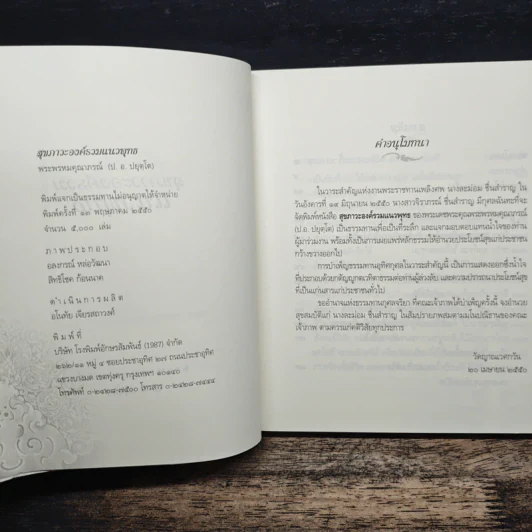 สุขภาวะองค์รวมแนวพุทธ
พระพรหมคุณาภรณ์ (ป. อ. ปยุตฺโต)
พิมพ์แจกเป็นธรรมทานไม่อนุญาตให้จำหน่าย
พิมพ์ครั้งที่ ๑๓ พฤษภาคม ๒๕๕๐
จำนวน ๕,๐๐๐ เล่ม
ภาพประกอบ
อลงกรณ์ หล่อวัฒนา
สิทธิโชค ก้อนนาค
ดำเนินการผลิต
อโนทัย เจียรสถาวงศ์
พิมพ์ที่
บริษัท โรงพิมพ์อักษรสัมพันธ์ (1987) จำกัด
หมู่ ๔ ซอยประชาอุทิศ ๒๗ ถนนประชาอุทิศ
แขวงบางมด เขตทุ่งครุ กรุงเทพฯ ๑๐๑๔๐
โทรศัพท์ ๐-๒๔๒๘-๗๕๐๐ โทรสาร
คำอนุโมทนา
ในวาระสำคัญแห่งงานพระราชทานเพลิงศพ นางละม่อม ชื่นสำราญ ใน
วันอังคารที่ มิถุนายน ๒๕๕๐ นางสาวจิราภรณ์ ชื่นสำราญ มีกุศลฉันทะที่จะ
จัดพิมพ์หนังสือ สุขภาวะองค์รวมแนวพุทธ ของพระเดชพระคุณพระพรหมคุณาภรณ์
(ป.อ. ปยุตฺโต) เป็นธรรมทานเพื่อเป็นที่ระลึก และแจกมอบตอบแทนน้ำใจของท่าน
ผู้มาร่วมงาน พร้อมทั้งเป็นการเผยแพร่หลักธรรมให้อำนวยประโยชน์สุขแก่ประชาชน
กว้างขวางออกไป
การบำเพ็ญธรรมทานอุทิศกุศลในวาระสำคัญนี้ เป็นการแสดงออกซึ่งน้ำใจ
ที่ประกอบด้วยกตัญญูกตเวทิตาธรรมต่อท่านผู้ล่วงลับ และความปรารถนาประโยชน์สุข
ที่เป็นแก่นสารแก่ประชาชนทั่วไป
ขออำนาจแห่งธรรมทานกุศลจริยา ที่คณะเจ้าภาพได้บำเพ็ญครั้งนี้ จงอำนวย
สุขสมบัติแก่ นางละม่อม ชื่นสำราญ ในสัมปรายภพสมตามมโนปณิธานของคณะ
เจ้าภาพ ตามควรแก่คติวิสัยทุกประการ
วัดญาณเวศกวัน
๒๐ เมษายน ๒๕๕๐